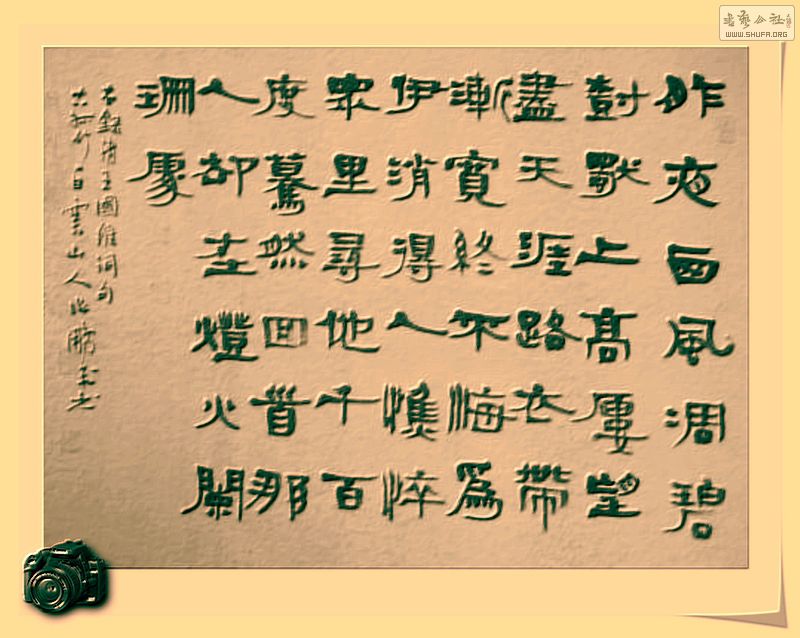 昨夜西風凋碧
樹獨上高樓望
盡天涯路衣帶
漸寬終不悔爲
伊消得人憔悴
眾里尋他千百
度驀然回首那
人却在燈火闌
珊處
右錄清王國維詞句
白雲山人
書藝公社
WWW.SHUFA.ORG